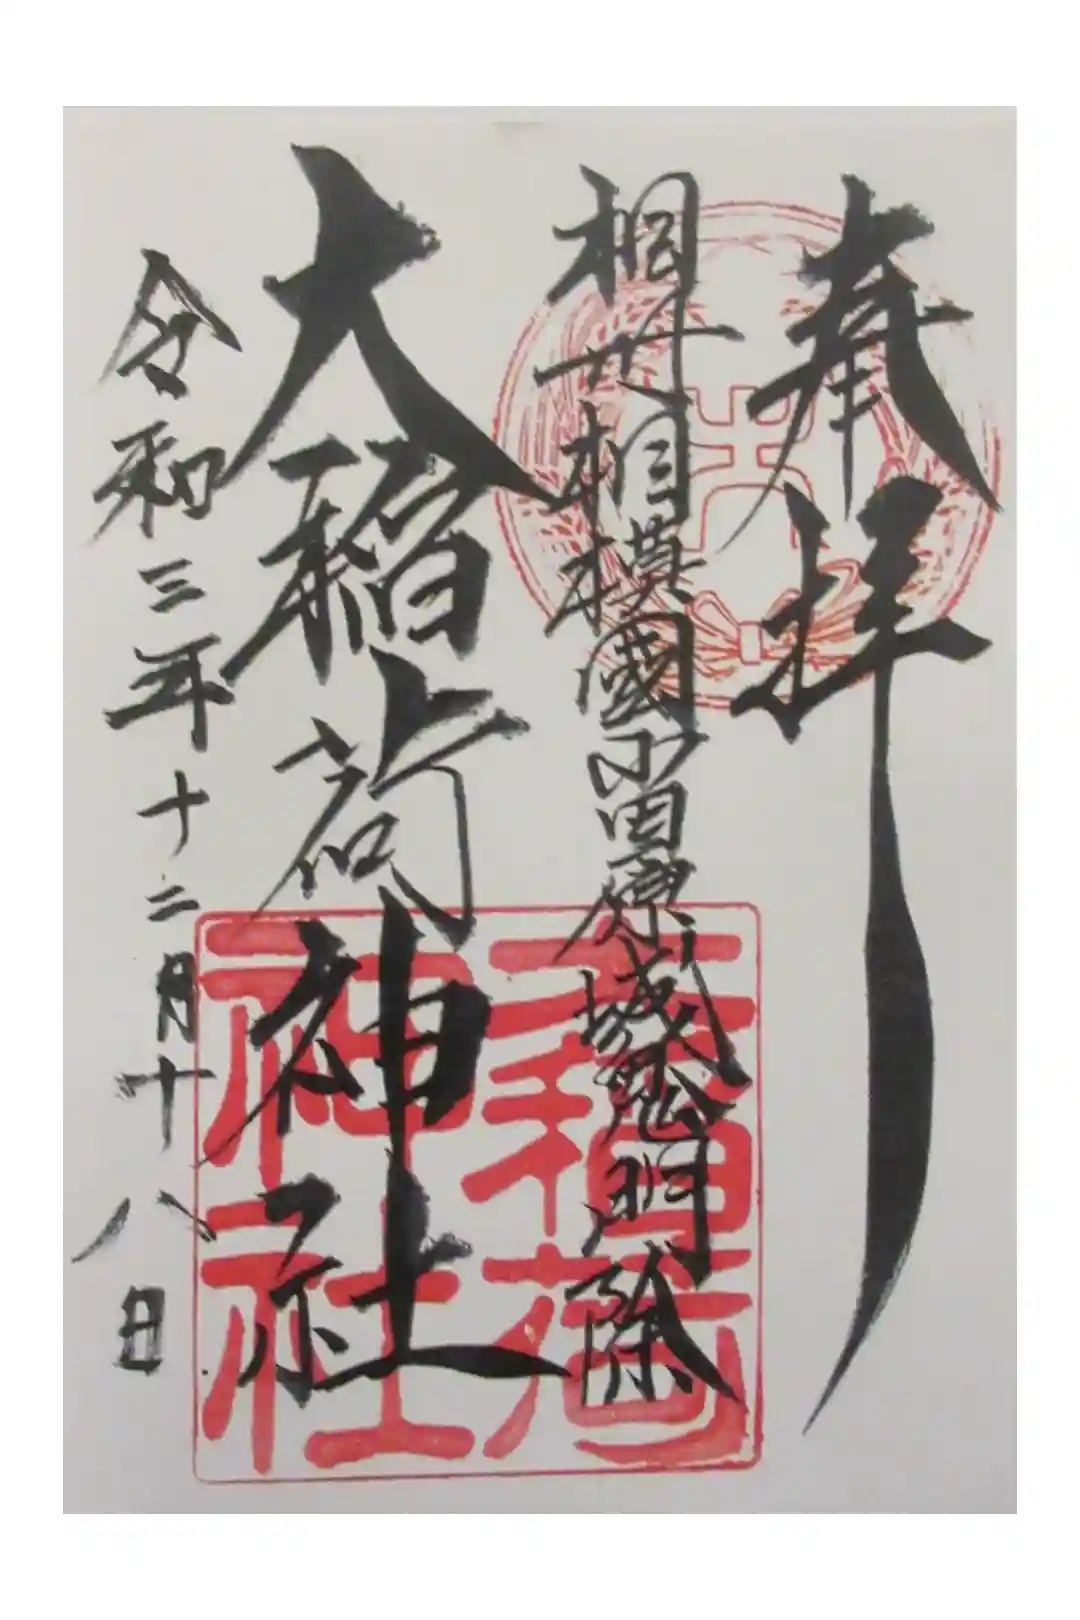 奉拝
相州相模國小田原城鬼門除
大稲荷神社
令和三年十二月十八日
大稲荷
神社